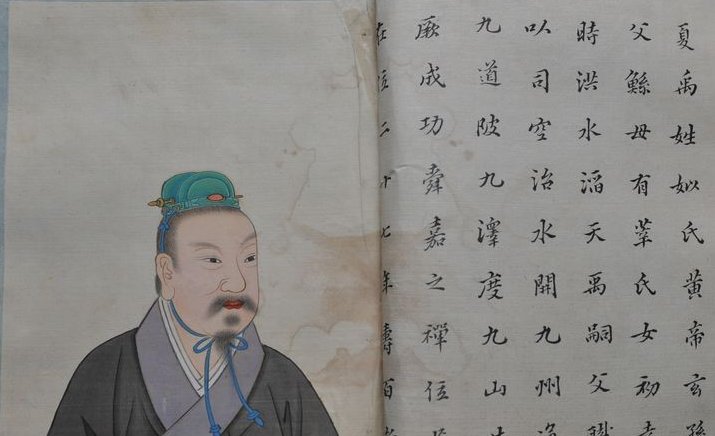 夏禹姓姒氏黄帝玄孫
父鯀母有莘氏女初
時洪水滔天禹嗣父職
以司空治水開九州
九道陂九澤度九山
厥成功舜嘉之禪位
在位二十七年壽百